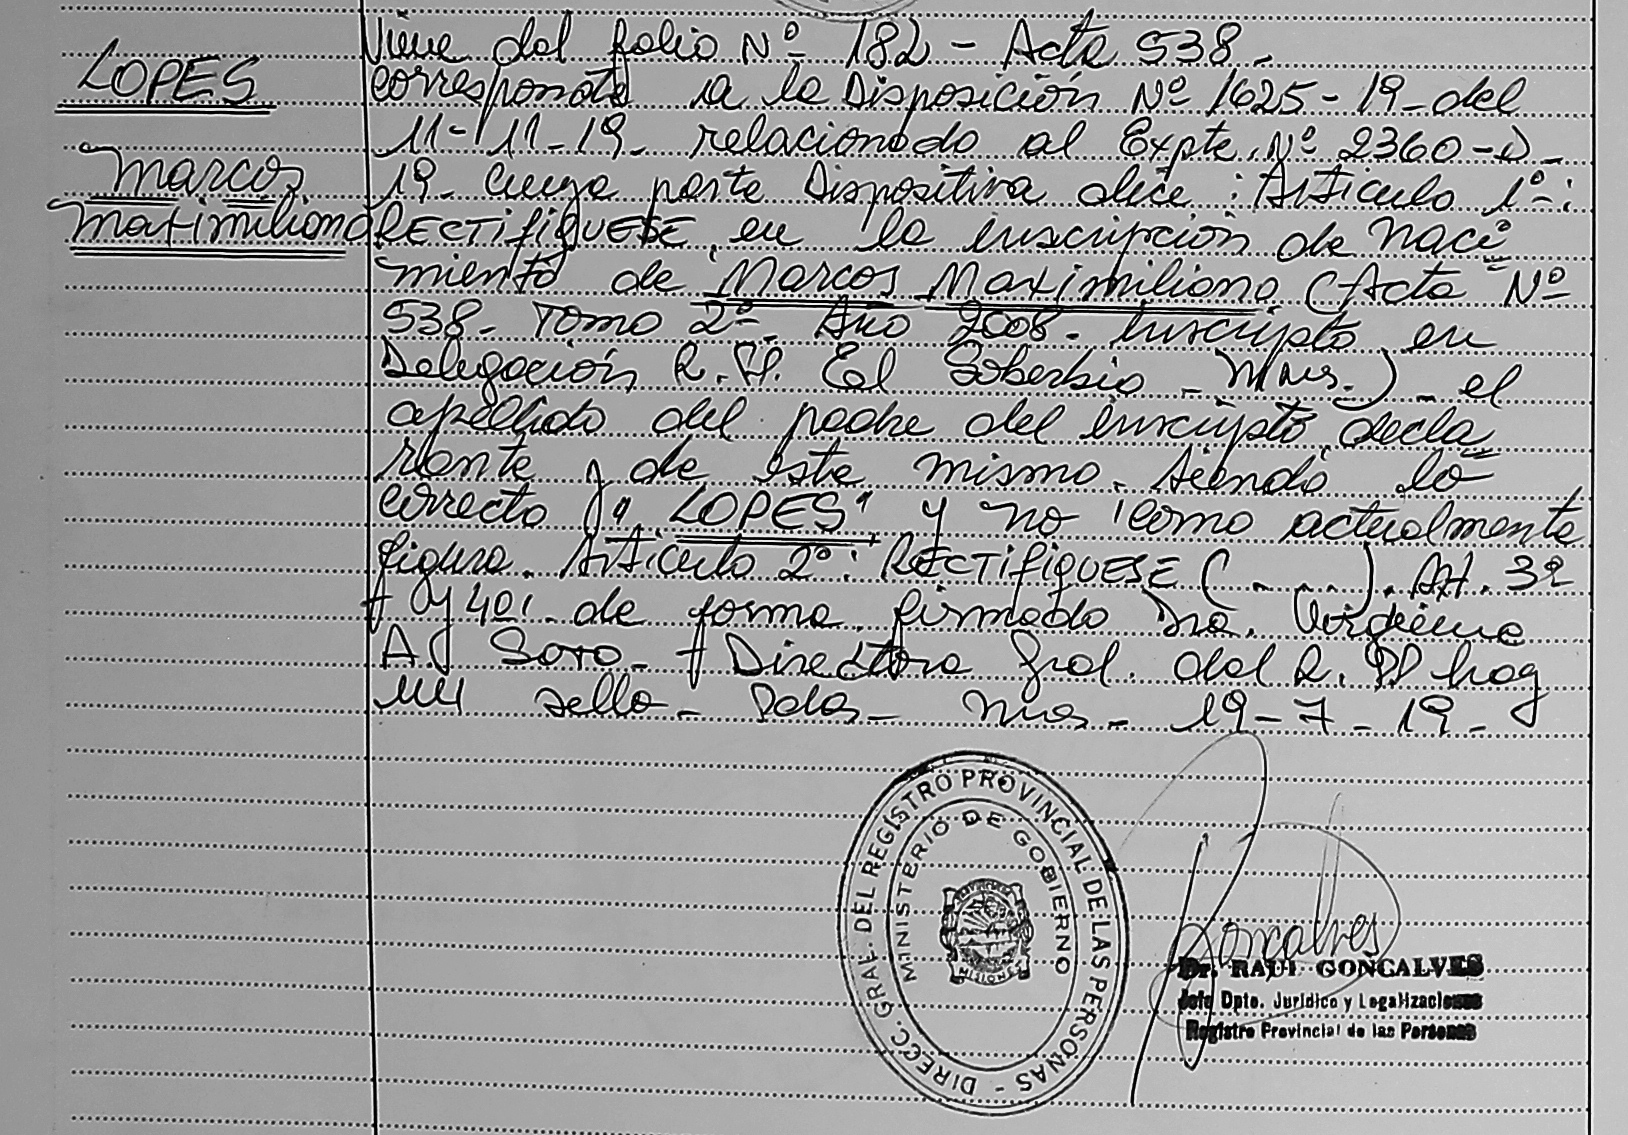 LOPES
Marcos
Maximiliano
Viene del folio Nº 182 - Acta 538.
corresponde a la Disposición Nº 1625-19- del
11-11-19. relacionado al Expte. Nº 2360-D-
19- cuya parte Dispositiva dice: Articulo 1º-:
RECTIFIQUESE, en la inscripción de naci
miento de Marcos Maximiliano (Acta Nº
538- Tomo 2º- Año 2008- Inscripto en
Delegación R.P. El Soberbio - Mnes.) - el
apellido del padre del inscripto, decla
rante y de este mismo. siendo lo
correcto "LOPES" y no como actualmente
figura. Articulo 2º: RECTIFIQUESE (....). Art. 3º
y 4º. de forma. firmado Dra. Virginia
A. Soto - Directora Gral. del R.PP hay
un sello - Pdas - Mnes - 19-7-19-
DIRECC. GRAL. DEL REGISTRO PROVINCIAL DE LAS PERSONAS -
MINISTERIO DE GOBIERNO
MISIONES
Goncalves
Dr. RAUL GONCALVES
Jefe Dpto. Jurídico y Legalizaciones
Registro Provincial de las Personas